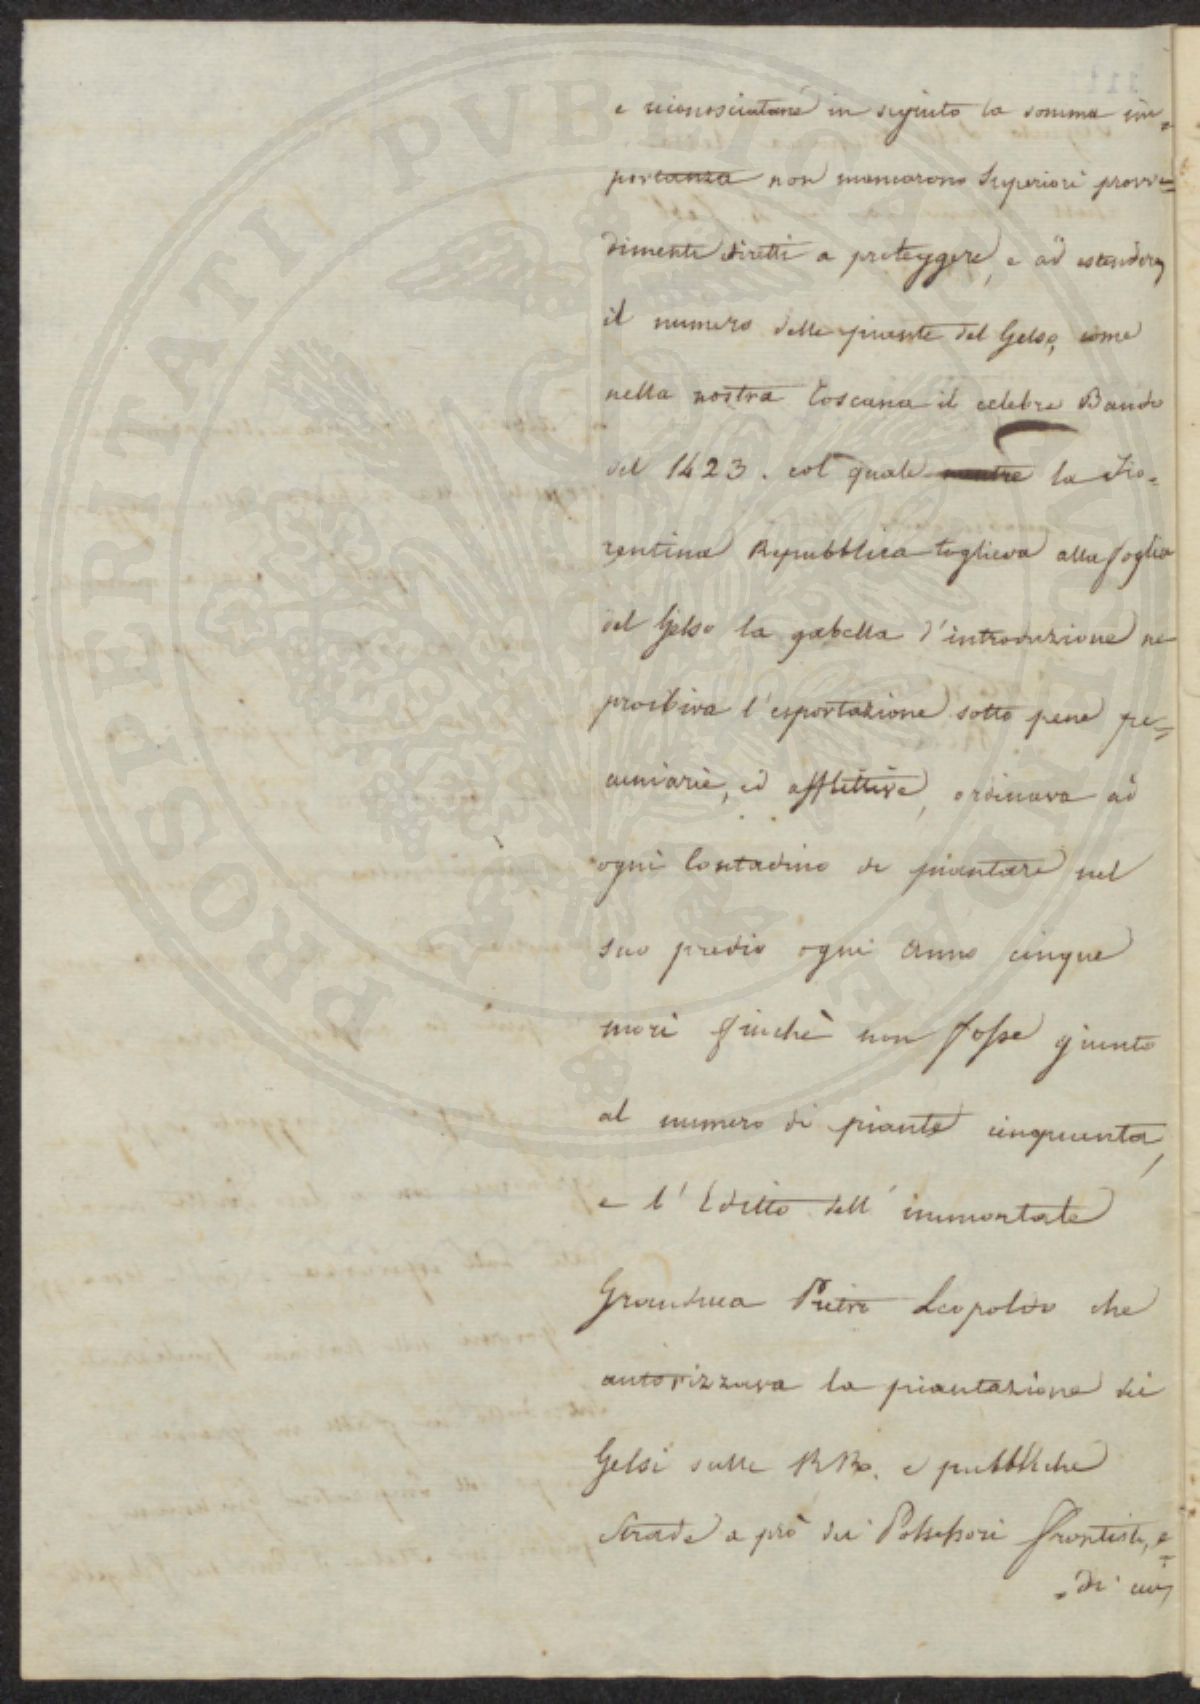 e riconosciutane in seguito la somma im=
portanza non mancarono Superiori provve=
dimenti diretti a proteggere, e ad estendere
il numero delle piante del Gelso, come
nella nostra Toscana il celebre Bando
del 1423. col quale la Fio=
rentina Repubblica toglieva alla foglia
del Gelso la gabella d'introduzione ne
proibiva l'esportazione sotto pene pe=
cuniarie, ed afflittive, ordinava ad
ogni Contadino di piantare nel
suo predio ogni anno cinque
mori finchè non fosse giunto
al numero di piante cinquanta,
e l'Editto dell'immortale
Granduca Pietro Leopoldo che
autorizzava la piantazione dei
Gelsi sulle RR. e pubbliche
Strade a prò dei Possessori frontisti, e
= di cui
PROSPERITATI PUBLICAE AUGENDAE